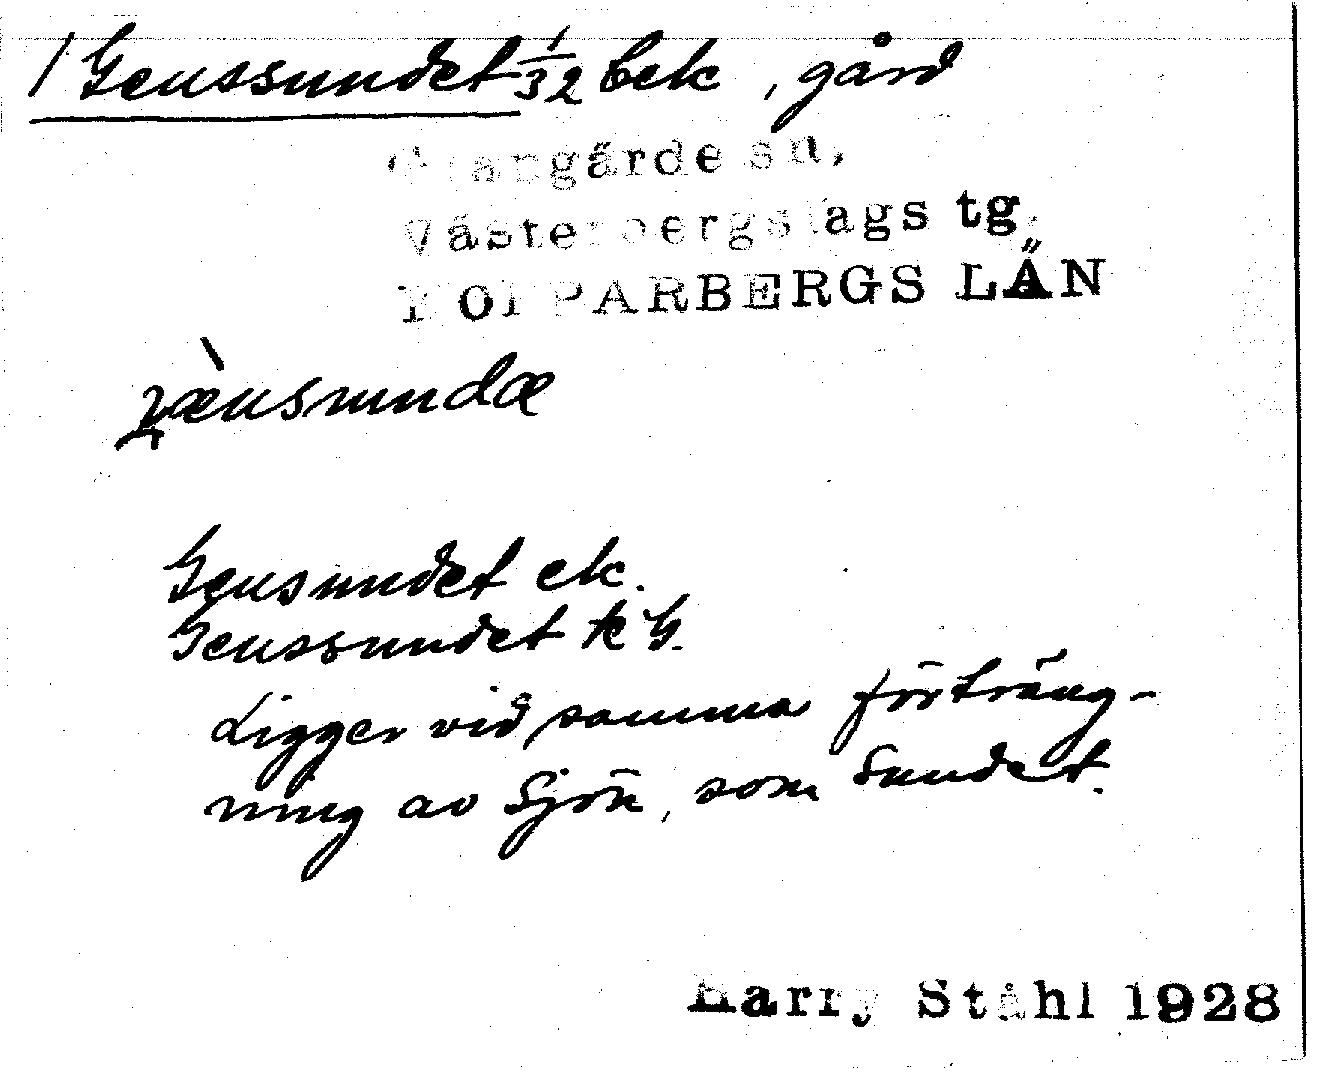 / Genssundet 1/32 bek, gård
Grangärde sn,
Västerbergslags tg.
KOPPARBERGS LÄN
Gensundet ek.
Genssundet k G.
Ligger vid samma förträng-
ning av Sjön, som Sundet.
Harry Ståhl 1928